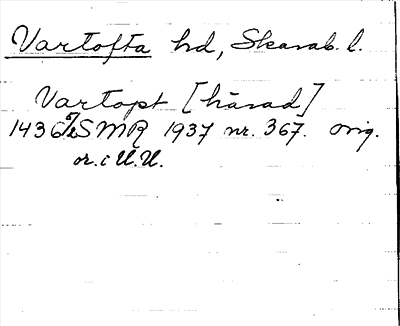 Vartofta hd, Skarab. l.
Vartopt [härad]
1436 SMR 1937 nr. 367. orig.
or. i U.U.